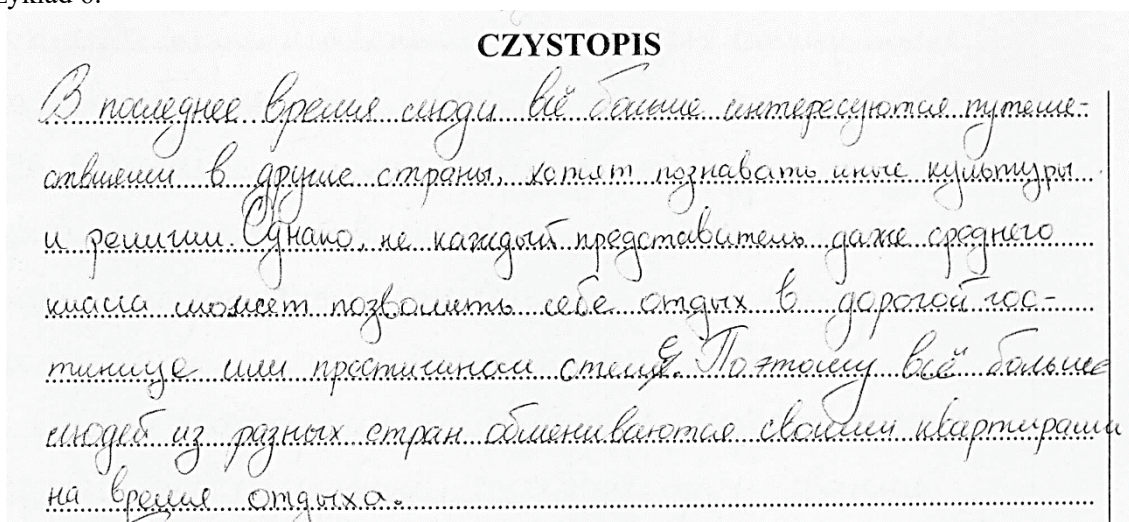 CZYSTOPIS
В последнее время люди всё больше интересуются путеше-
ствием в другие страны, хотят познавать иные культуры
и религии. Однако, не каждый представитель даже среднего
класса может позволить себе отдых в дорогой гос-
тинице или отеле. Поэтому всё больше
людей из разных стран обмениваются своими квартирами
на время отдыха.